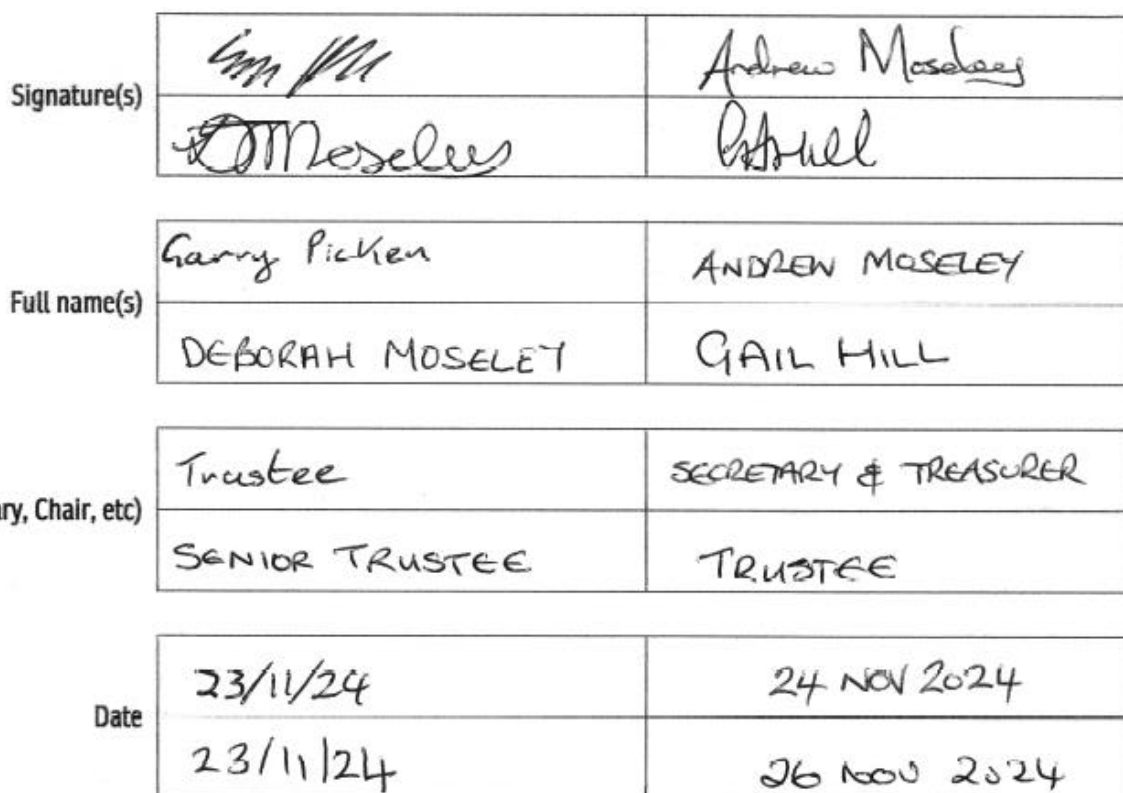 Signature(s)
Andrew Moseley
Moseley
Full name(s)
Garry Picken
ANDREW MOSELEY
DEBORAH MOSELEY
GAIL HILL
ary, Chair, etc)
Trustee
SECRETARY & TREASURER
SENIOR TRUSTEE
TRUSTEE
Date
23/11/24
24 NOV 2024
23/11/24
26 NOV 2024